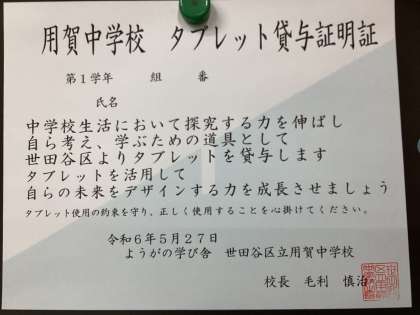 用賀中学校 タブレット貸与証明証
第1学年 組 番
氏名
中学校生活において探究する力を伸ばし
自ら考え、学ぶための道具として
世田谷区よりタブレットを貸与します
タブレットを活用して
自らの未来をデザインする力を成長させましょう
タブレット使用の約束を守り、正しく使用することを心掛けてください。
令和6年5月27日
ようがの学び舎 世田谷区立用賀中学校
校長 毛利 慎治